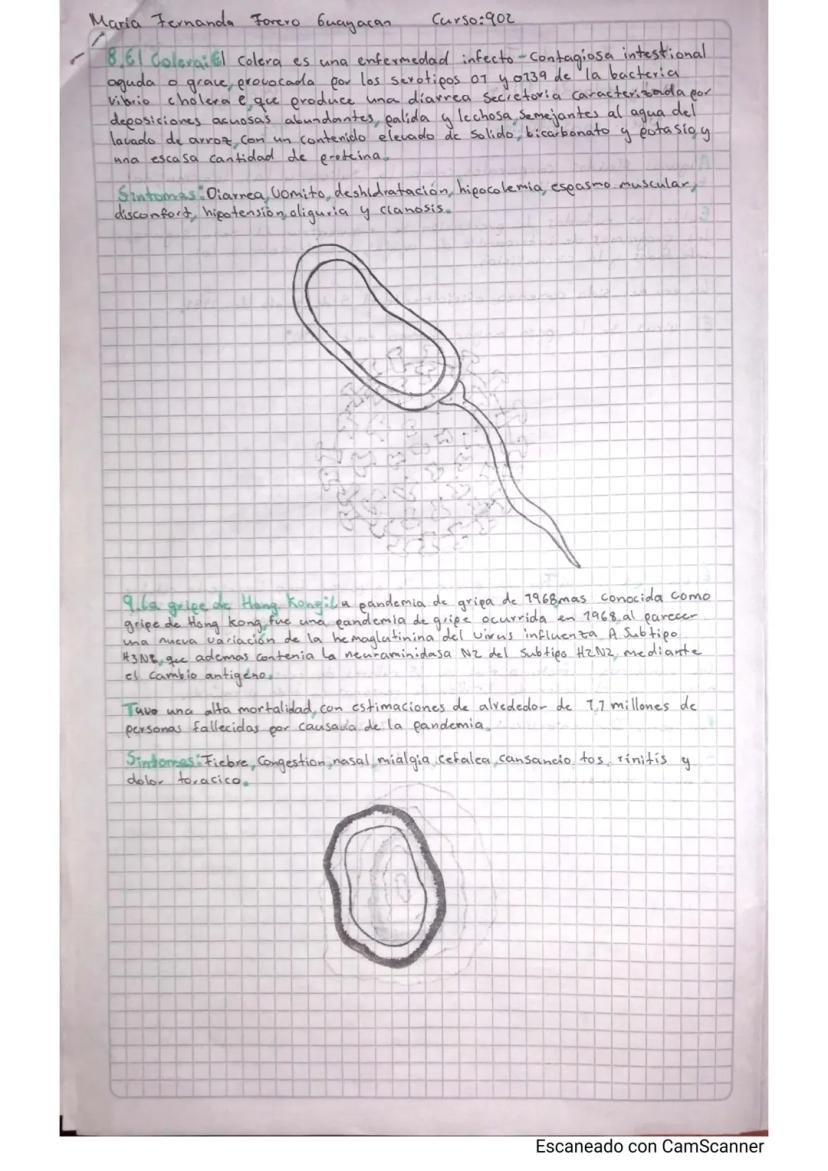 Maria Fernanda Forero Guayacan Curso:902
8.El Colera:El colera es una enfermedad infecto-contagiosa intestional
aguda o grave, provocada por los serotipos 01 y 0139 de la bacteria
vibrio cholera e, que produce una diarrea secretoria caracterizada por
deposiciones acuosas abundantes, palida y lechosa, semejantes al agua del
lavado de arroz, con un contenido elevado de solido, bicarbonato y potasio, y
una escasa cantidad de proteina.
Sintomas:Diarrea, Vomito, deshidratación, hipocolemia, espasmo muscular,
disconfort, hipotensión, oliguria y cianosis.
9.La gripe de Hong Kong:La pandemia de gripa de 1968, mas conocida como
gripe de Hong Kong, fue una pandemia de gripe ocurrida en 1968, al parecer
una nueva variación de la hemaglutinina del virus influenza A Subtipo
H3N2, que ademas contenia la neuraminidasa N2 del subtipo H2N2, mediante
el cambio antigéno.
Tuvo una alta mortalidad, con estimaciones de alrededor de 1,7 millones de
personas fallecidas por causa de la pandemia.
Sintomas:Fiebre, Congestion, nasal, mialgia, cefalea, cansancio, tos, rinitis y
dolor toracico.
Escaneado con CamScanner